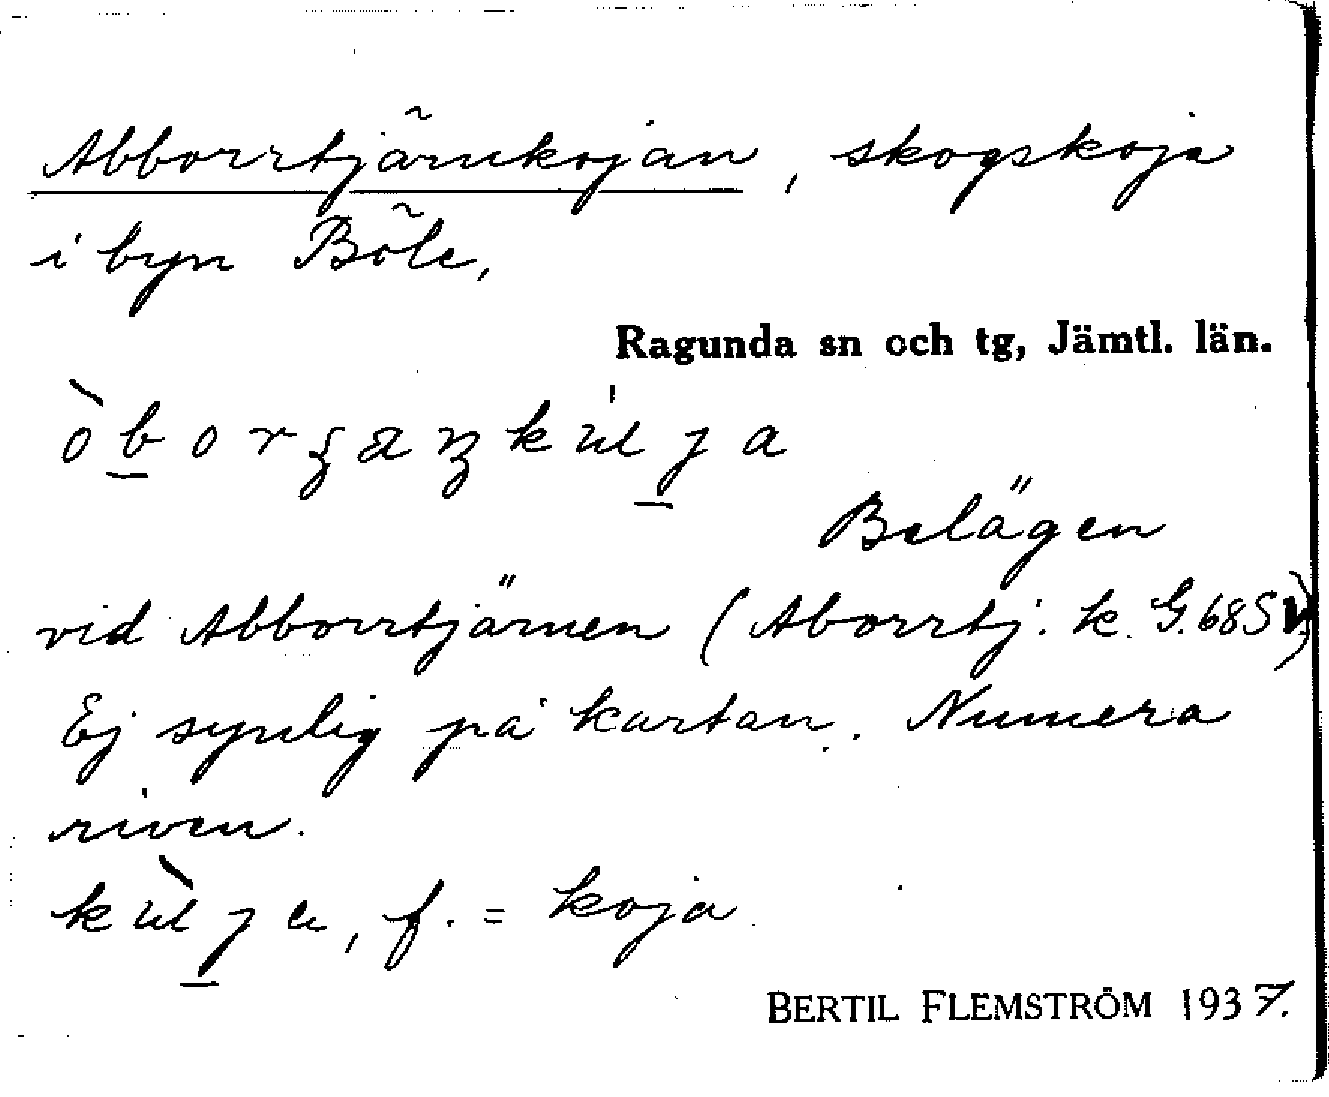 Abborrtjärnkojan, skogskoja
i byn Böle,
Ragunda sn och tg, Jämtl. län.
Belägen
vid Abborrtjärnen (Aborrtj. k. G. 68 SV)
Ej synlig på kartan. Numera
riven.
f. = koja
BERTIL FLEMSTRÖM 1937.